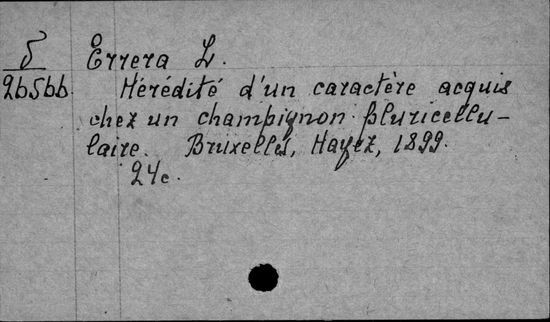 5 Errera L.
26566 Hérédité d'un caractère acquis
chez un champignon pluricellu-
laire. Bruxelles, Hayez, 1899.
24c.